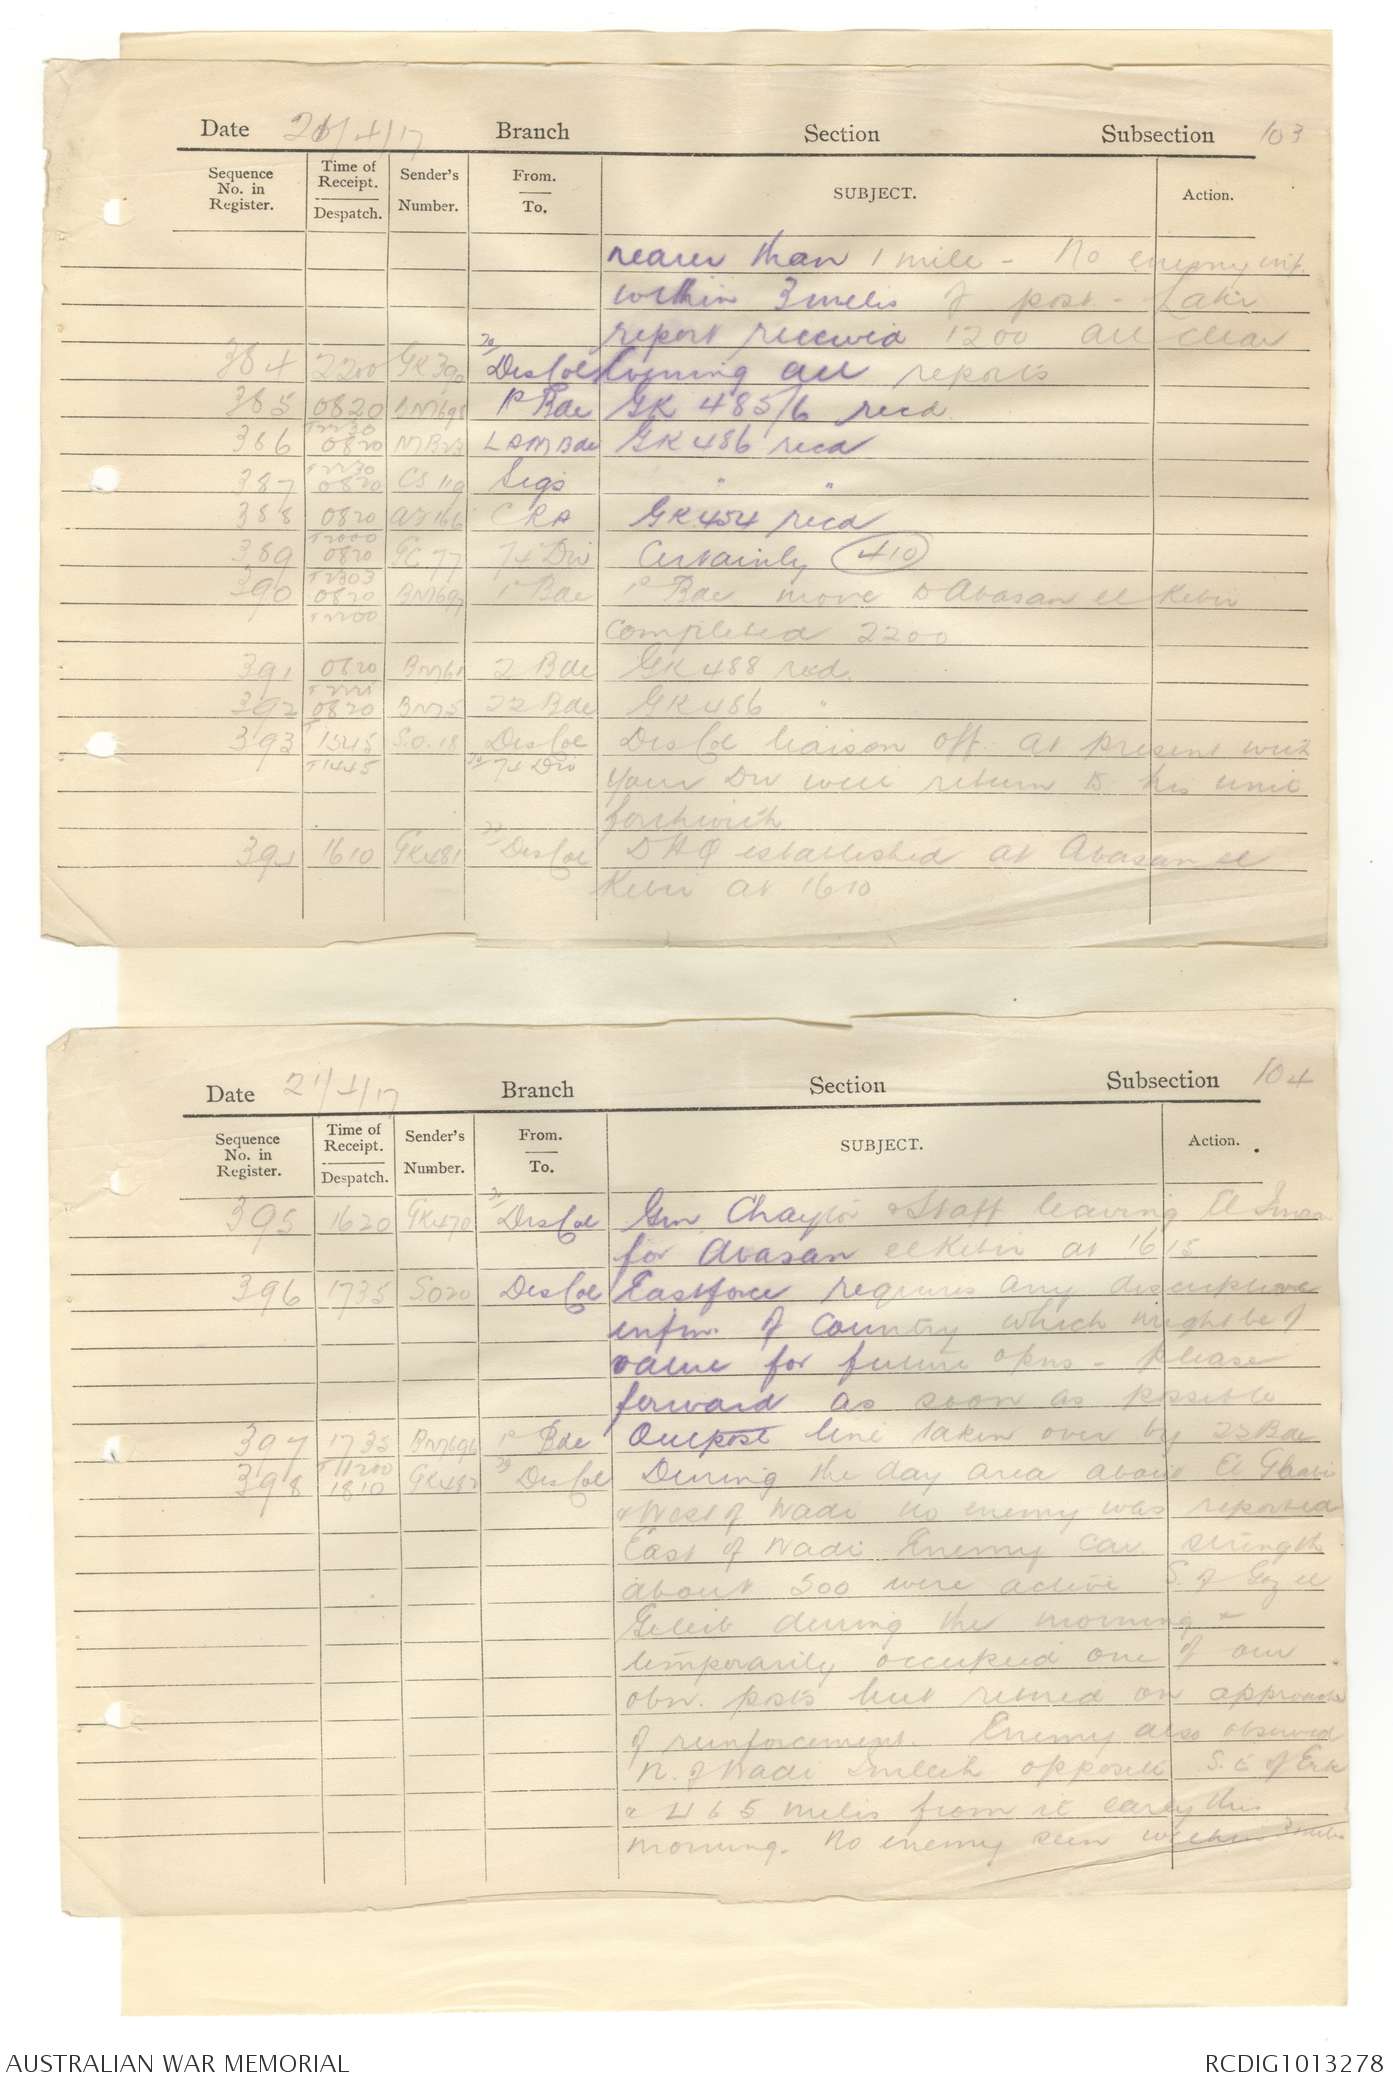 Date 21/4/17 Branch Section Subsection 103
Sequence No. in Register. Time of Receipt. Despatch. Sender's Number. From. To. SUBJECT. Action.
nearer than 1 mile - No enemy inf.
within 3 miles of post - Later
report received 1200 all clear
384 2200 GK390 To DesCol Evening all reports
385 0820 BM698 1st Bde GK 485/6 recd
T2230
386 0820 MB23 LAMBde GK 486 recd
T2230
387 0820 CS119 Sigs " "
388 0820 AZ166 CRA GK 454 recd
T2000
389 0820 GC77 74 Div Certainly 410
T2303
390 0820 BM697 1st Bde 1st Bde move to Abasan el Kebir
T2200 completed 2200
391 0820 BM61 2 Bde GK 488 recd.
392 0820 BM75 22 Bde GK 486 "
393 1545 S.O.18 DesCol DesCol liaison off. at present with
T1445 To 74 Div your Div will return to his unit
forthwith
394 1610 GK481 DesCol DHQ established at Abasan el
Kebir at 1610
Date 21/4/17 Branch Section Subsection 104
Sequence No. in Register. Time of Receipt. Despatch. Sender's Number. From. To. SUBJECT. Action.
395 1620 GK470 DesCol Gen. Chaytor & Staff leaving El
for Abasan el Kebir at 1615
396 1735 SO20 DesCol Eastforce requires any descriptive
infm. of country which might be of
value for future opns - please
forward as soon as possible
397 1735 BM696 1st Bde Outpost line taken over by 22 Bde
T1200
398 1810 GK482 DesCol During the day area about El Ghabi
& West of Wadi no enemy was reported
East of Wadi Enemy Cav. strength
about 500 were active S. of Goz el
Geleib during the morning &
temporarily occupied one of our
obn. posts but retired on approach
of reinforcement. Enemy also observed
N. of Wadi Imleih opposite S.E of Erk
& 4 to 5 miles from it early this
morning. No enemy seen within 3 miles
AUSTRALIAN WAR MEMORIAL RCDIG1013278